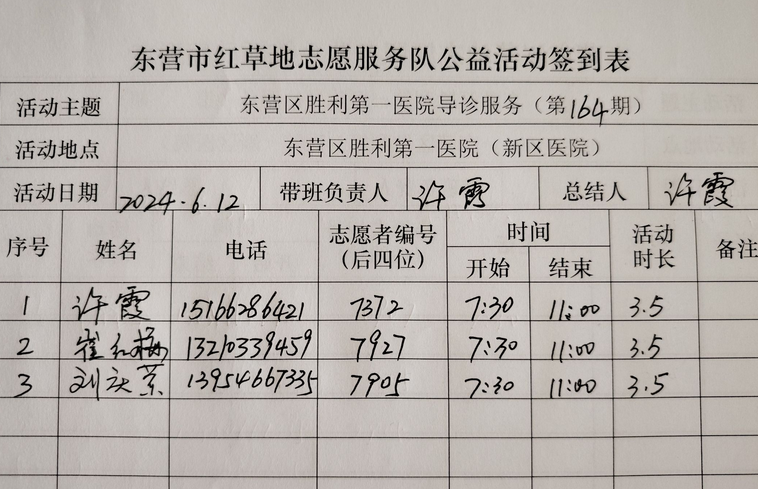 东营市红草地志愿服务队公益活动签到表
活动主题 东营区胜利第一医院导诊服务（第164期）
活动地点 东营区胜利第一医院（新区医院）
活动日期 2024.6.12 带班负责人 许霞 总结人 许霞
序号 姓名 电话 志愿者编号（后四位） 时间 开始 结束 活动时长 备注
1 许霞 15166286421 7372 7:30 11:00 3.5
2 崔红梅 13210339459 7927 7:30 11:00 3.5
3 刘庆荣 13954667335 7905 7:30 11:00 3.5